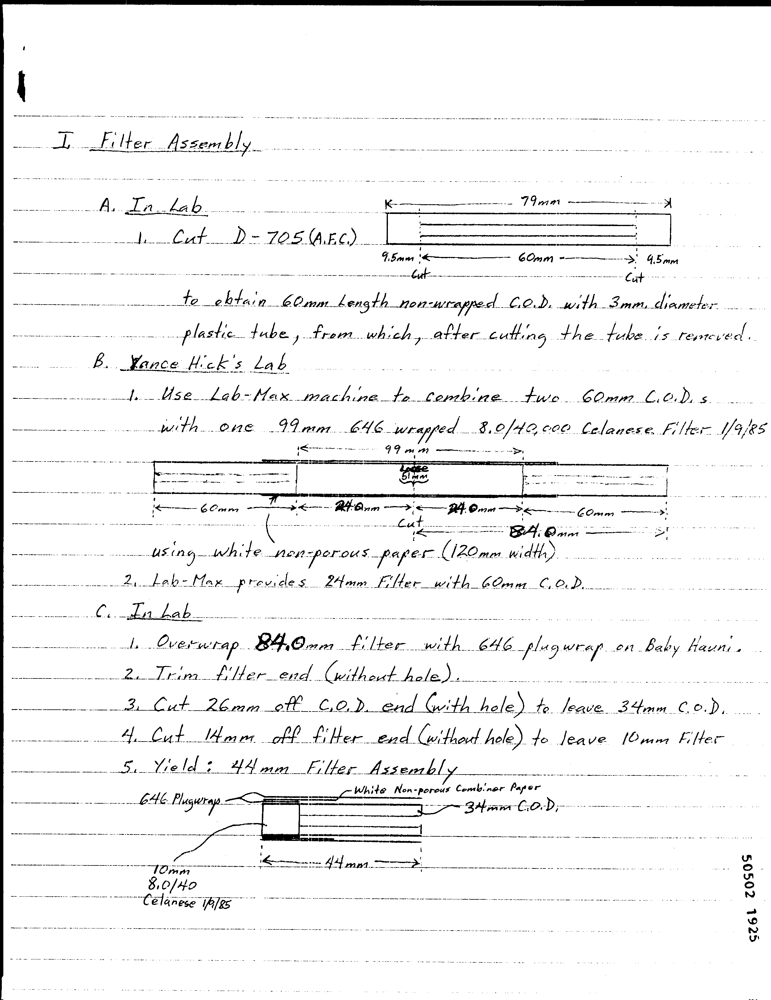 I Filter Assembly
A. In Lab
79mm
1. Cut D-705 (A.F.C.)
9.5mm 60mm 9.5mm
Cut Cut
to obtain 60mm Length non-wrapped C.O.D. with 3mm. diameter
plastic tube, from which, after cutting the tube is removed.
B. Vance Hick's Lab
1. Use Lab-Max machine to combine two 60mm C.O.D.s
with one 99mm 646 wrapped 8.0/40,000 Celanese Filter 1/9/85
99mm
51mm
60mm 24.0mm 24.0mm 60mm
Cut 84.0mm
using white non-porous paper (120mm width)
2. Lab-Max provides 24mm Filter with 60mm C.O.D.
C. In Lab
1. Overwrap 84.0mm filter with 646 plugwrap on Baby Hauni.
2. Trim filter end (without hole).
3. Cut 26mm off C.O.D. end (with hole) to leave 34mm C.O.D.
4. Cut 14mm off filter end (without hole) to leave 10mm Filter
5. Yield: 44mm Filter Assembly
White Non-porous Combiner Paper
646 Plugwrap 34mm C.O.D.
44mm
10mm
8.0/40
Celanese 1/9/85
50502 1925